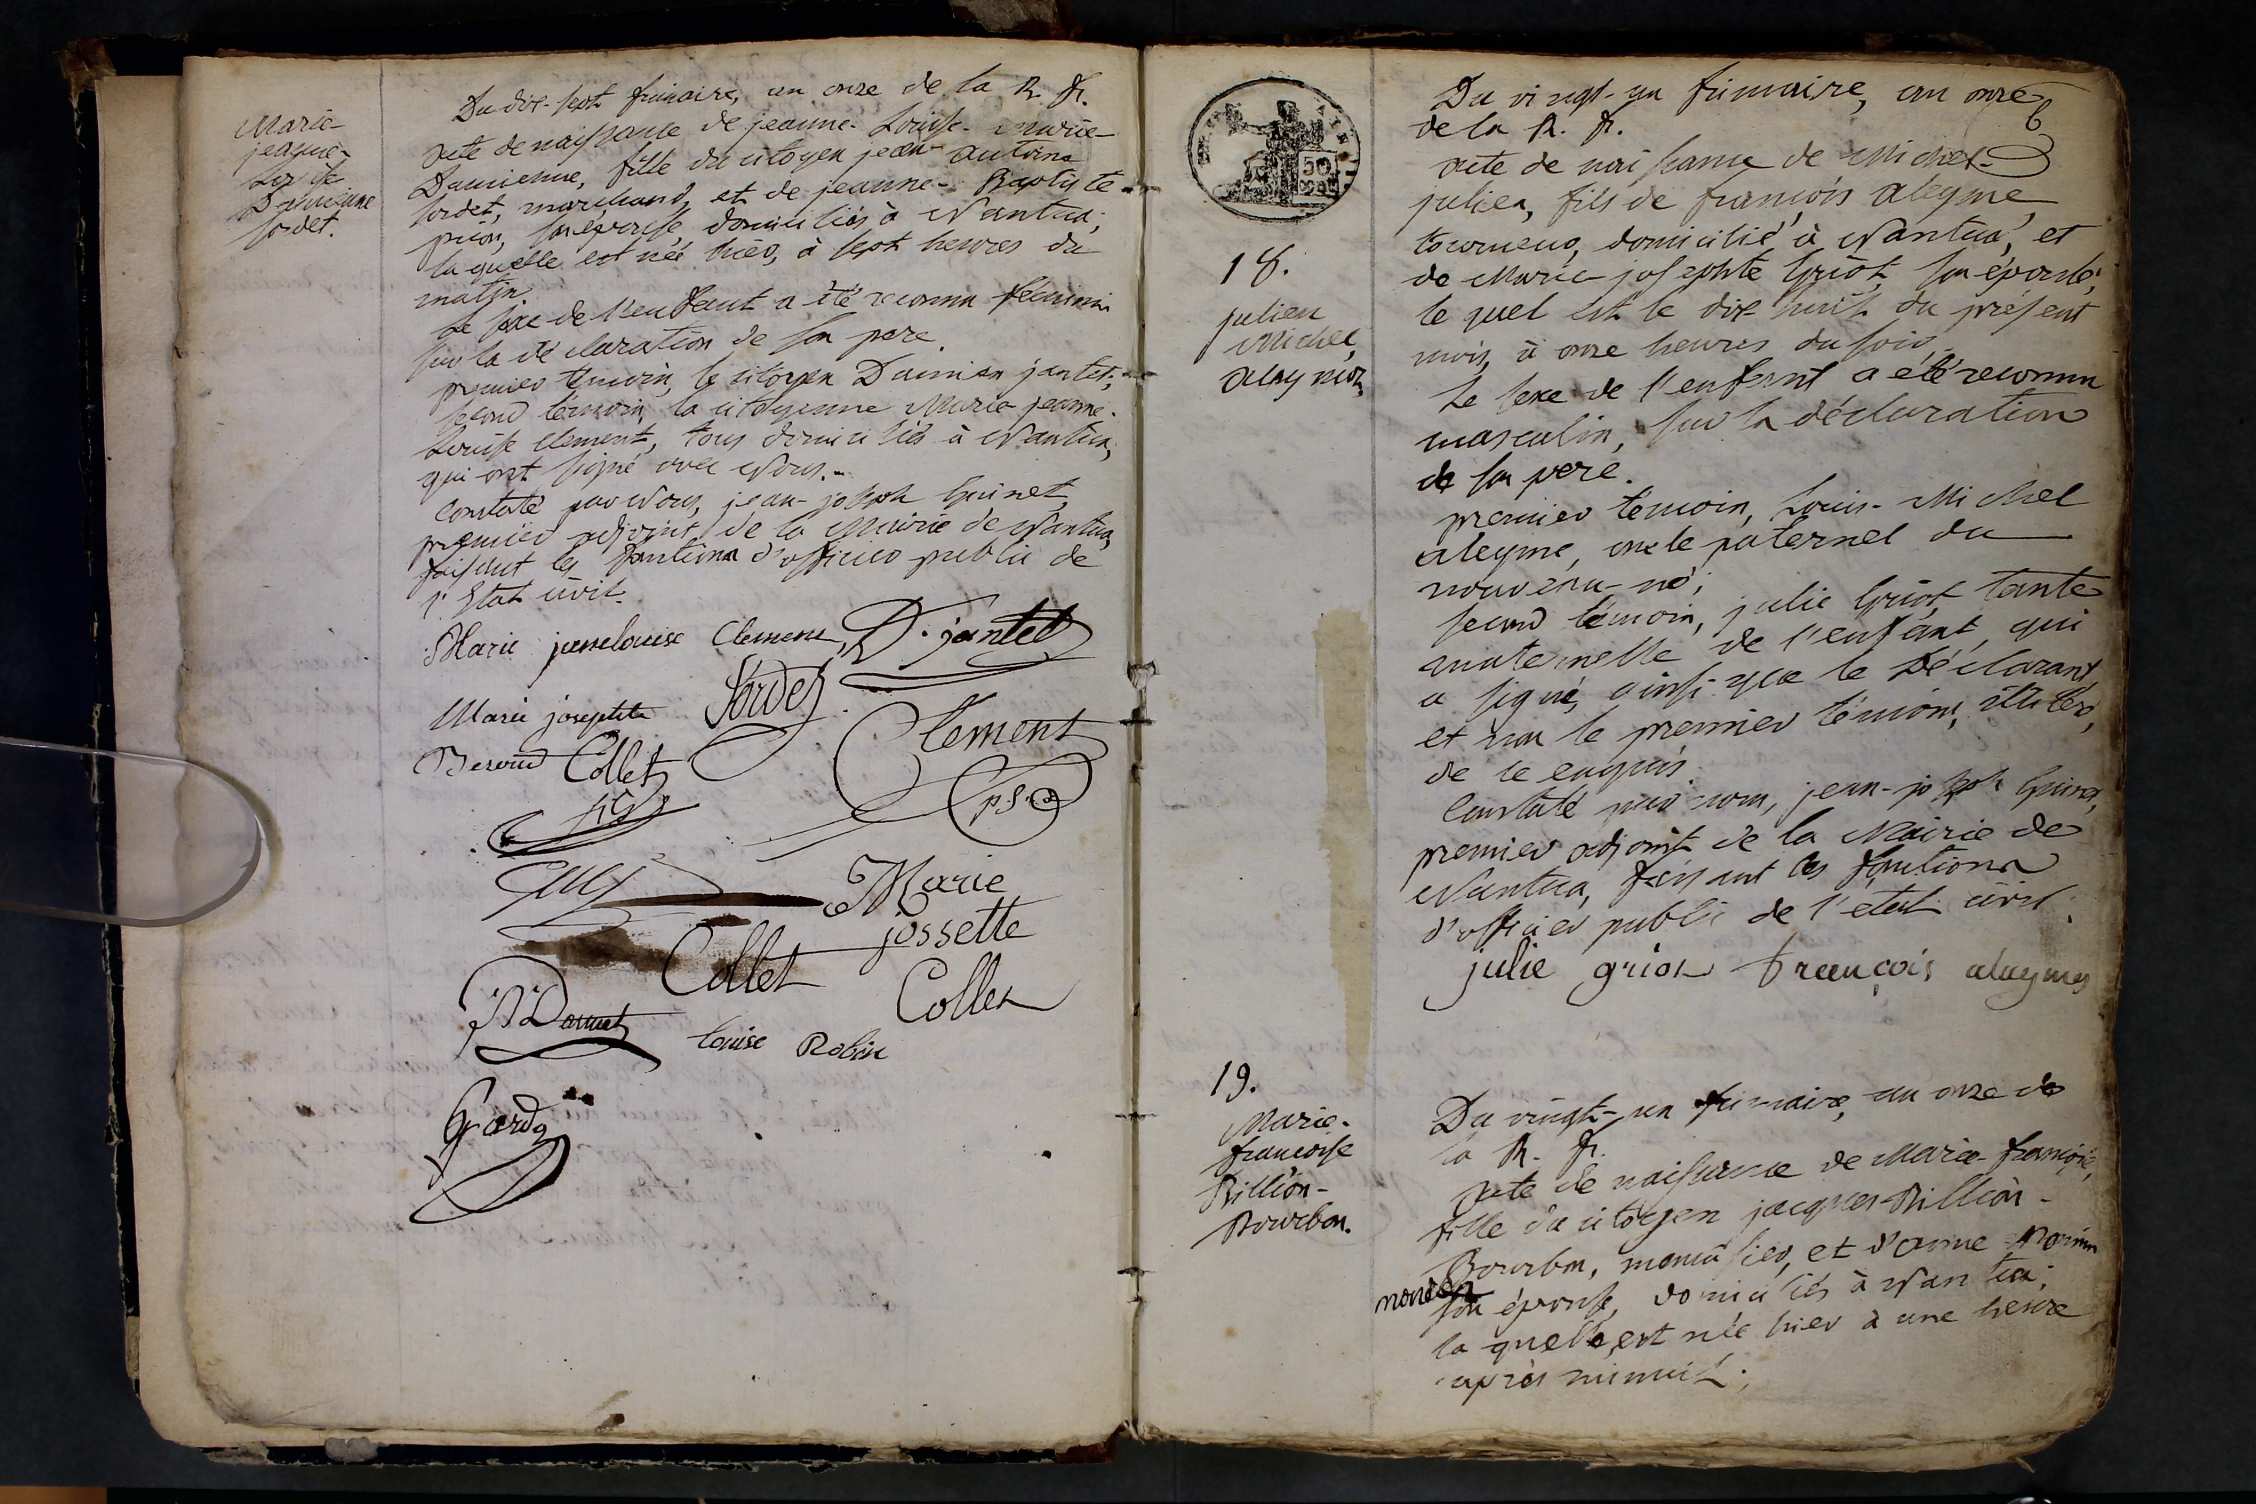 Marie-
jeanne-
Louise
Damienne
sordet.
Du dix-sept frimaire, an onze de la R. fr.
acte de naissance de jeanne-Louise-marie
Damienne, fille du citoyen jean-antoine
sordet, marchand, et de jeanne-Baptiste
prion, son épouse, domiciliés à Nantua;
la quelle est née hier, à sept heures du
matin.
Le sexe de l'enfant a été reconnu féminin
sur la déclaration de son pere.
premier témoin, le citoyen Damien jantet;
second témoin, la citoyenne Marie-jeanne-
Louise Clement, tous domiciliés à Nantua,
qui ont signé avec Nous.
Constaté par Nous, jean-joseph Guinet,
premier adjoint de la Mairie de Nantua,
faisant les fonctions d'officier public de
l'Etat civil.
Marie janelouise Clement, D. jantet
Marie josephte Sordet Clement
Beroud Collet fils
Marie
jossette
Collet Collet
Louise Robin
6
50
18.
julien
Michel,
Du vingt-un frimaire, an onze
de la R. fr.
acte de naissance de Michel-
julien, fils de françois aleyme,
tourneur, domicilié à Nantua, et
de Marie-josephte Griot, son épouse;
le quel est le dix huit du présent
mois, à onze heures du soir.
Le sexe de l'enfant a été reconnu
masculin, sur la déclaration
de son pere.
premier témoin, Louis-Michel
aleyme, oncle paternel du
nouveau-né;
second témoin, julie Griot, tante
maternelle de l'enfant, qui
a signé, ainsi que le Déclarant,
et non le premier témoin, illitéré,
de ce enquis.
Constaté par nous, jean-joseph Guinet,
premier adjoint de la Mairie de
Nantua, faisant les fonctions
d'officier public de l'etat civil.
julie griot françois alayme
19.
Marie-
francoise
Billion-
Bourbon.
Du vingt-un frimaire, an onze de
la R. fr.
acte de naissance de Marie-françoise,
fille du citoyen jacques Billion-
Bourbon, et d'anne
son épouse, domiciliés à Nantua;
la quelle, est née hier à une heure
après minuit;